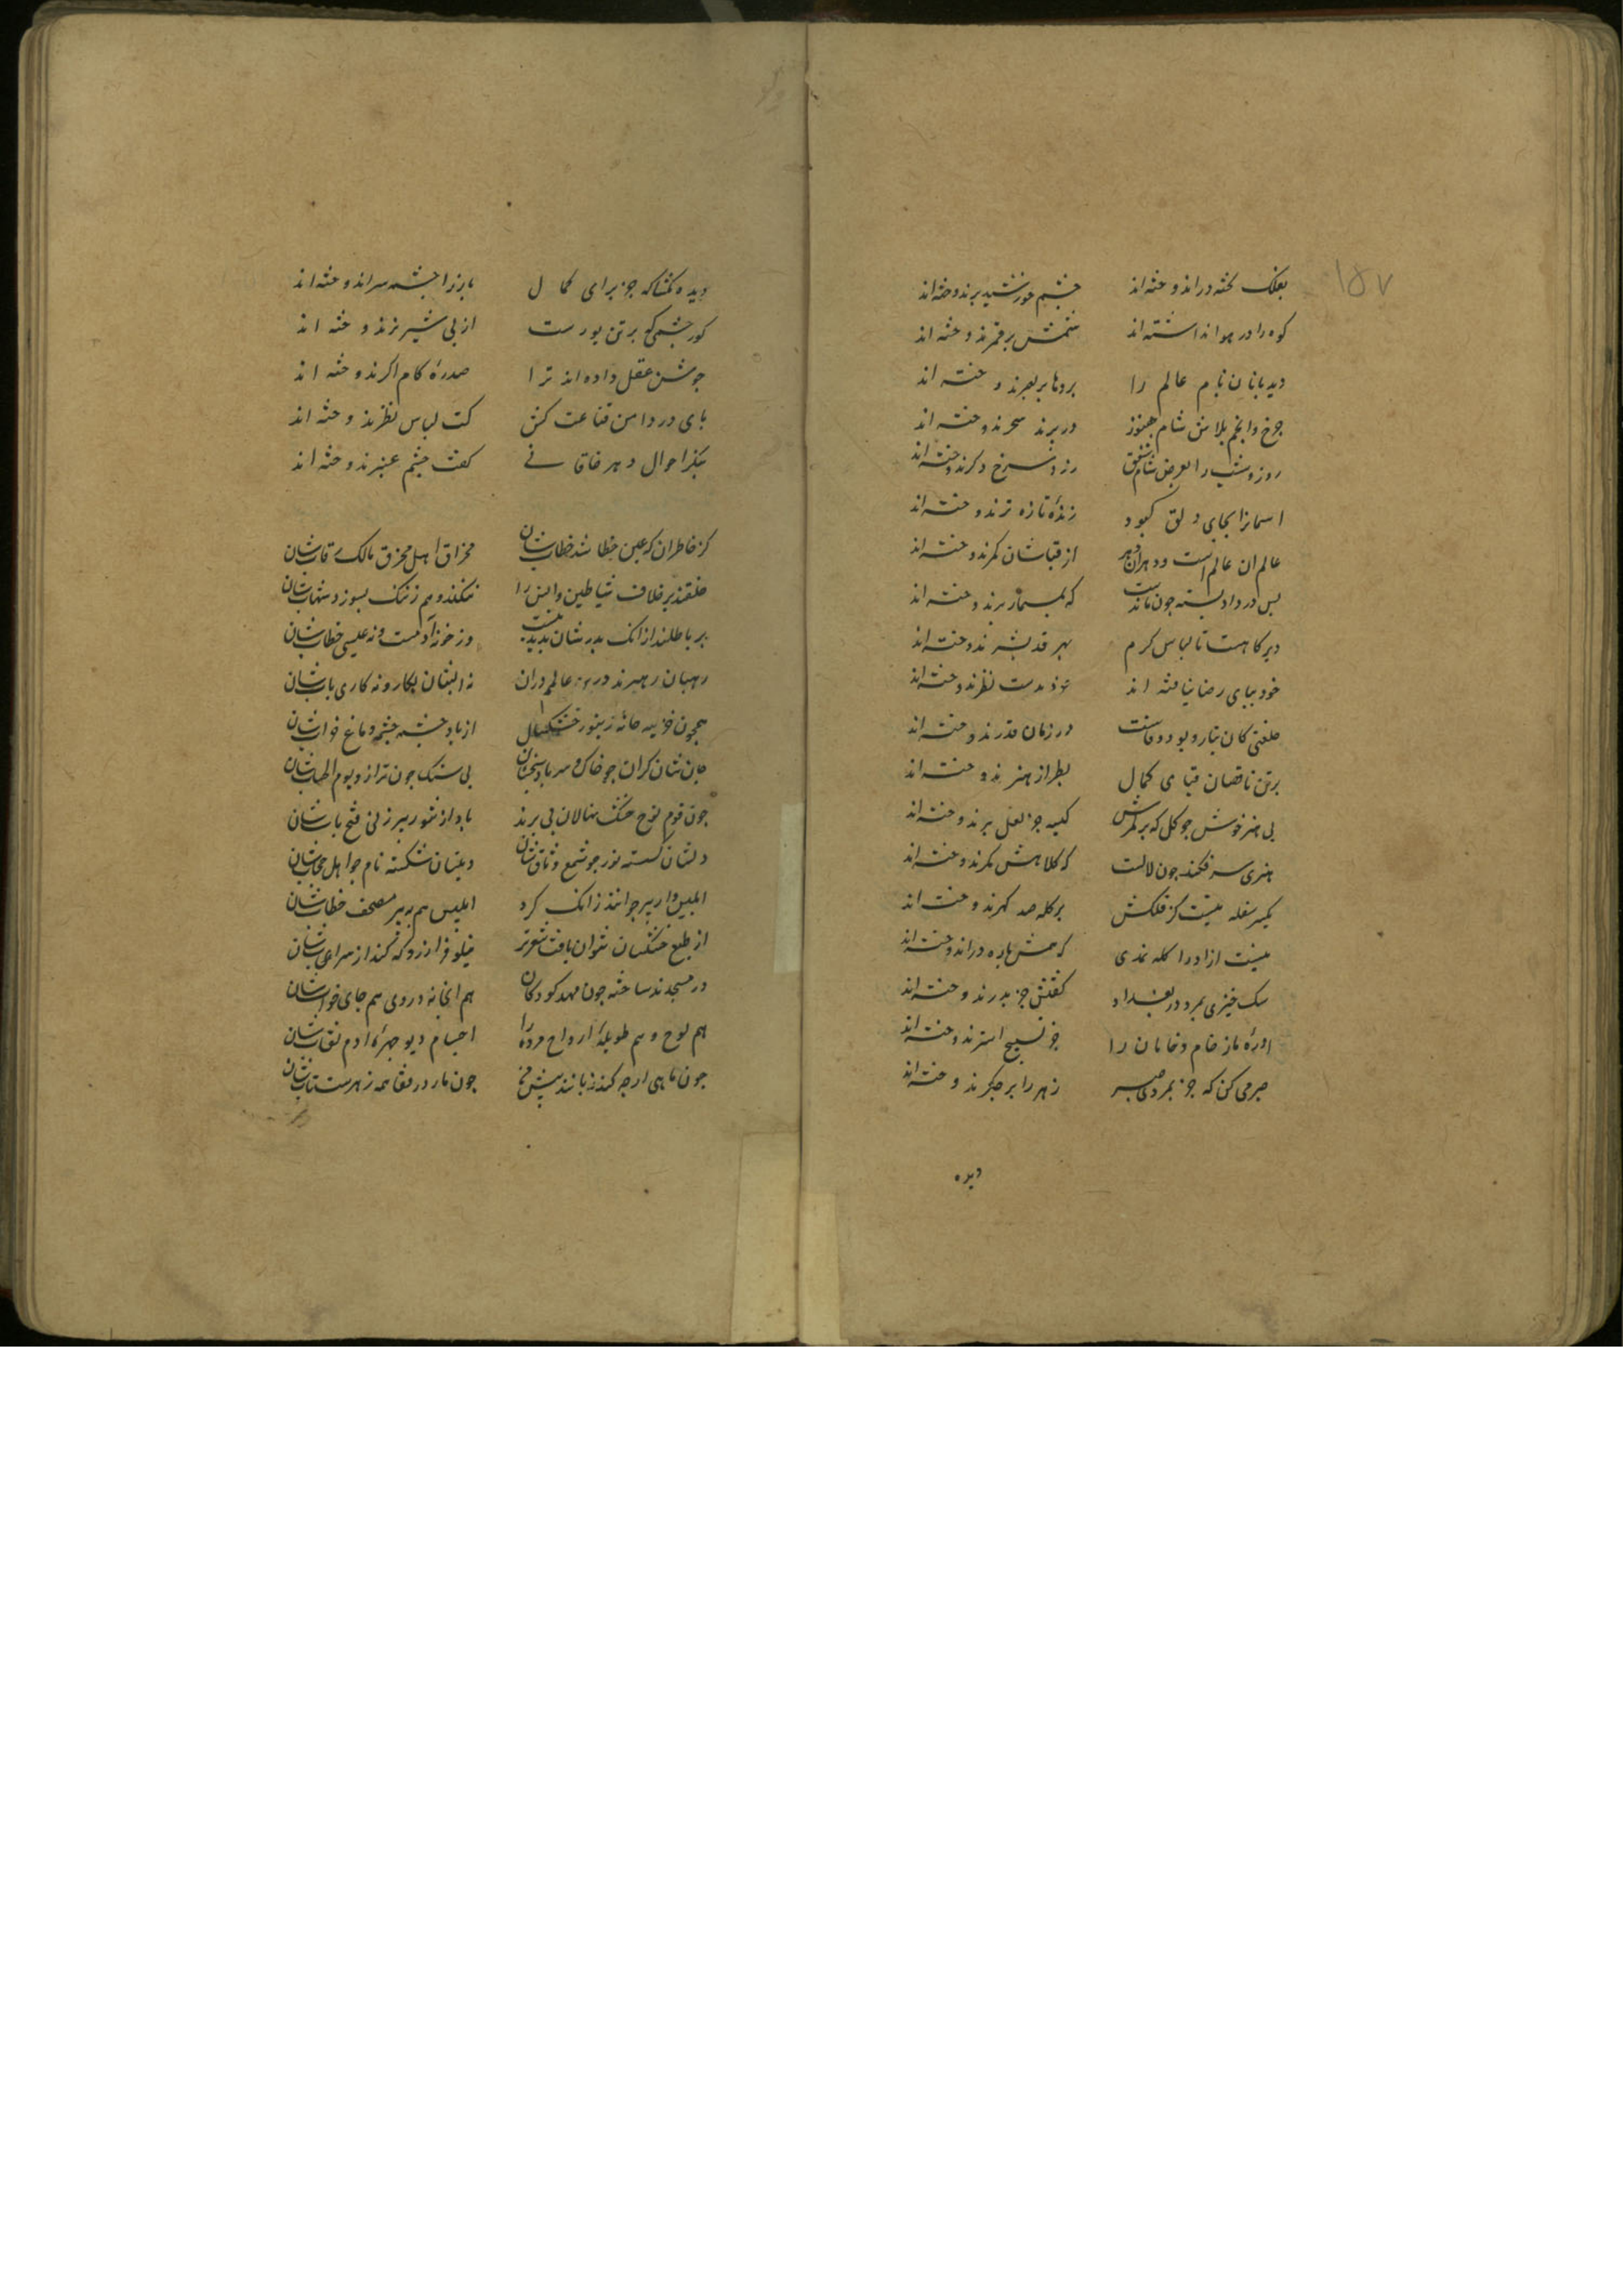 ۱۵۷
بفلک تخته در اند وخته‌اند چشم خورشید برند وخته‌اند
کوه را در هوا نداشته‌اند شمش برقمرند وخته اند
دیدبانان بام عالم را بروها بر بصرند و ختـه اند
چرخ وانجم پلاس شام هنوز در برند سحرند وختـه اند
روز وشب را بعرض شام شفق رزد وسرخ دکرند وختـه‌اند
اسمانرا بجای دلق کبود زندهٔ تازه ترند و ختـه‌اند
عالم ان عالم است ودهر ان دهر از قباشان کمرند وختـه اند
بس در داد بسته چون ماندست که بمسمار برند و ختـه اند
دیر کاهست تا لباس کرم بهر قد بشرند وختـه‌اند
خود ببای رضا نیافته اند بدست نظرند وختـه‌اند
خلعتی کان بتار وبود وفاست در زمان قدرند و ختـه اند
برتن ناقصان قبای کمال بطراز هنرند و ختـه‌اند
بی هنر خوش جو کل که برکمرش کیسه جز لعل برند وختـه‌اند
هنری سرفکنده چون لالست که کلاهش مکرند وختـه‌اند
یکسر سفله نیست کز فلکش برکله صد کهرند و ختـه اند
نیست ازاد را کله نمدی که همش باره در اند وختـه‌اند
سک خیزی بمرد در بغداد کفنش جز بدرند و ختـه‌اند
باز خام وخامان را جز نسیج استرند وختـه‌اند
صبر می کن که جز بمردی صبر زهر را بر جکرند و ختـه‌اند
دیده
دیده مکشا که جز برای کمال بازرا جشـم سراند وخته اند
کور جشمی که برتن بورست از بی شیر نرند و خته اند
جوشن عقل داده اند ترا صدرهٔ کام اکرند و خته اند
بای در دامن قناعت کش کت لباس نظرند و خته اند
بنکر احوال دهر خاقانی کفت چشم عبرند وخته اند
کژ خاطران که عین خطا شد خطابشان مخراق اهل مخرق مالک رقابشان
خلقند برخلاف شیاطین وانس را نبکنندو هم زننک بسوزد شهابشان
بر باطلند ازانک بدرشان بدید نیست وز خود نه آدمست ونه عیسی خطابشان
رهبان رهبرند در عالم وران نه ابشان بکار ونه کاری بابشان
همچون خزینه خانهٔ زنبور خشکسال از باد جشمه جشمه دماغ خرابشان
جان شان کران جو خاک وسر باد سنجشان بی سنک چون ترازو یوم الحسابشان
چون قوم نوح خشک نهالان بی برند باد از تنور بیر زنی فتح بابشان
دلشان کسسته نور جو شمع وثاقشان دینشان شکسته نام جو اهل حجابشان
ابلیس وار بیر جوانند زانک کرد ابلیس هم به بیر مصحف خطابشان
از طبع خشکشان نتوان یافت شعر تر نیلوفر ارزو که کند از سرابشان
در مسجدند ساخته چون مهد کودکان هم ابخانه در وی هم جای خوابشان
هم لوح و هم طویلهٔ ارواح مرده را اجسام دیو جهرهٔ ادم نقابشان
چون ماهی ارچه کنده زبانند بیش چون مار در قفا همه زهرست نابشان